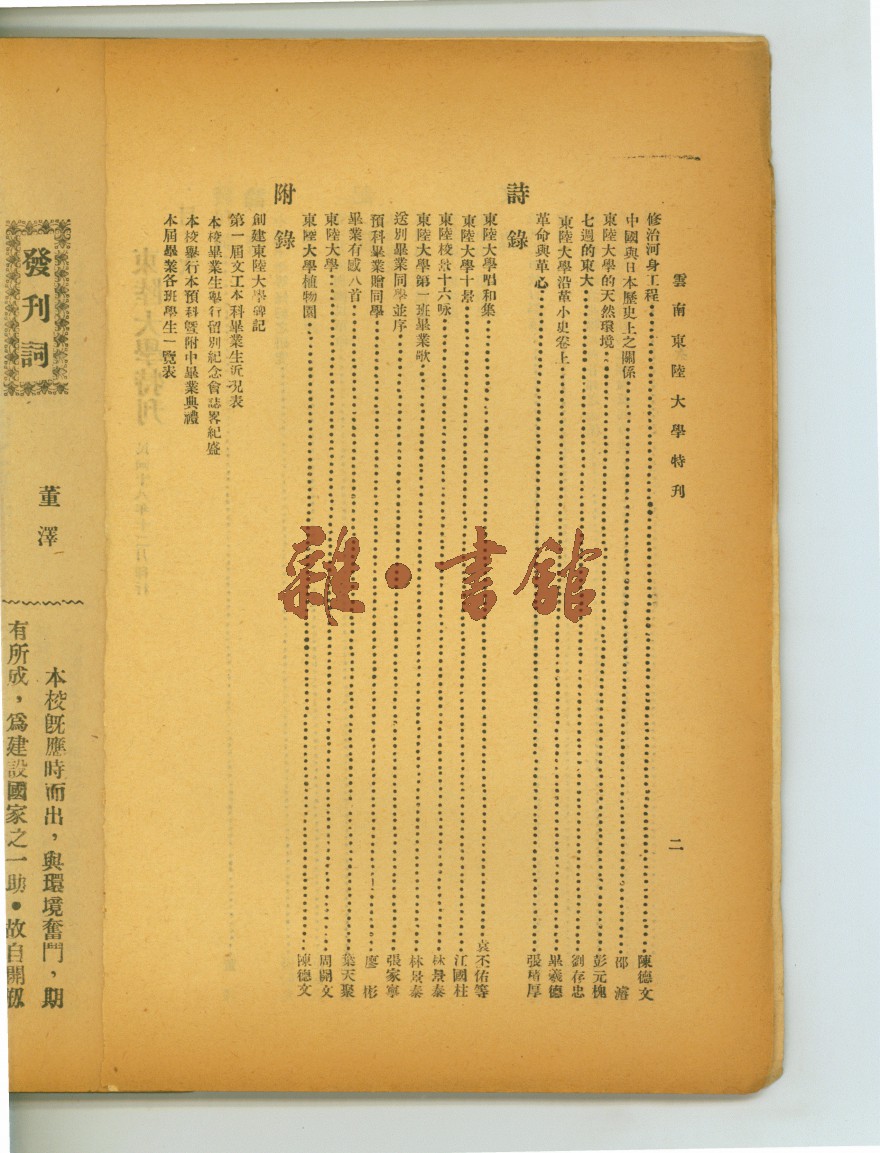 雲南東陸大學特刊
二
修治河身工程 陳德文
中國與日本歷史上之關係 邵濬
東陸大學的天然環境 彭元槐
七週的東大 劉存忠
東陸大學沿革小史卷上 畢羲德
革命與革心 張厚
詩錄
東陸大學唱和集 袁丕佑等
東陸大學十景 江國柱
東陸校景十六咏 林景泰
東陸大學第一班畢業歌 林景泰
送別畢業同學並序 張家寧
預科畢業贈同學 廖彬
畢業有感八首 葉天聚
東陸大學 周嗣文
東陸大學植物園 陳德文
附錄
創建東陸大學碑記
第一屆文工本科畢業生近況表
本校畢業生舉行留別紀念會誌畧紀盛
本校舉行本預科暨附中畢業典禮
本屆畢業各班學生一覽表
雜·書館
發刊詞
董澤
本校既應時而出，與環境奮鬥，期
有所成，爲建設國家之一助●故自開